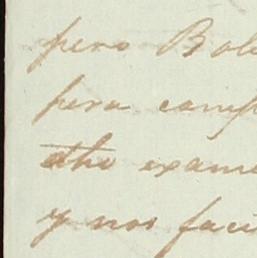 pero Bol
pera camp
dho exame
y nos faci